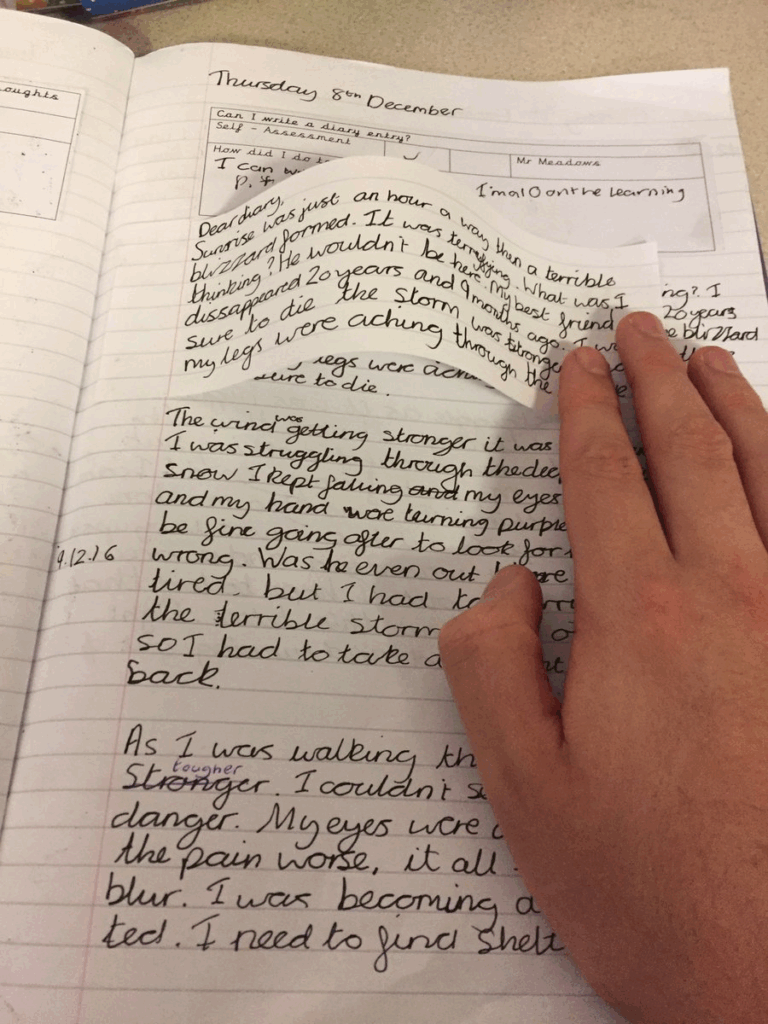 oughts
Thursday 8th December
Can I write a diary entry?
Self - Assessment
How did I do t
Mr Meadows
I can w
I'm a 10 on the learning
p. t
Dear diary,
Sunrise was just an hour a way then a terrible
blizzard formed. It was terrifying. What was I
thinking? He wouldn't be here. My best friend
dissappeared 20 years and 9 months ago. I w
sure to die the storm was stronge
my legs were aching through the
ng? I
20 years
e blizzard
legs were ach
sure to die.
The wind was getting stronger it was
I was struggling through the dee
snow I kept falling and my eyes
and my hand were turning purple
be fine going after to look for
9.12.16
wrong. Was he even out here
tired, but I had to
the terrible storm
so I had to take a
back.
As I was walking th
Stronger. tougher I couldn't s
danger. My eyes were
the pain worse, it all
blur. I was becoming a
ted. I need to find Shelt